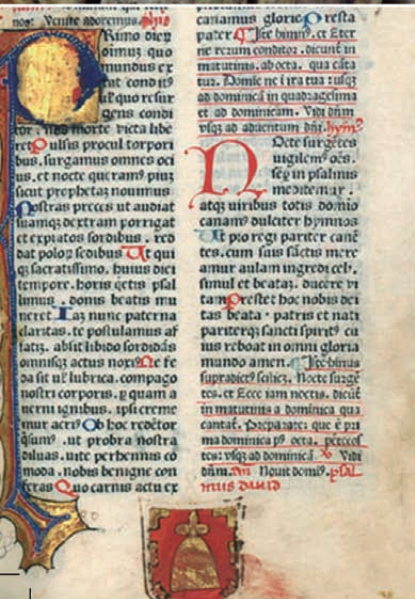 nos. Venite adoremus.
Rimo dieȝ
oimuȝ quo
mundus ex
tat condit⁹
uł quo resur
gens condi
tor. nos morte victa libe
ret Pulsis procul torpori
bus. surgamus omnes oci
us. et nocte queram⁹ piuȝ
sicut prophetaȝ nouimus
Nostras preces ut audiat
suamqȝ dextram porrigat
et expiatos sordibus. red
dat poloȝ sedibus Ut qui
qȝ sacratissimo. huius diei
tempore. horis q̄etis psal
limus. donis beatis mu
neret Iaȝ nunc paterna
claritas. te postulamus af
fatiȝ. absit libido sordidās
omnisqȝ actus noxi⁹ Ne fe
da sit uł lubrica. compago
nostri corporis. ꝑ quam a
uerni ignibus. ipsi creme
mur acri⁹ Ob hoc redētor
q̄sum⁹. ut probra nostra
diluas. uite perhennis cō
moda. nobis benigne con
feras Quo carnis actu ex
canamus glorie Presta
pater. Iste himn⁹. et Eter
ne rerum conditor. dicunt̄ in
matutinis. ab octa. epiphanie
ad dominicā in quadragesima
et ad dominicam. Vidi dn̄m
usqȝ ad aduentum dn̄i. hym⁹
Nocte surgētes
uigilem⁹ oēs.
sēp in psalmis
meditemur.
atqȝ uiribus totis domīo
canam⁹ dulciter hymnos
Ut pio regi pariter canē
tes. cum suis sāctis mere
amur aulam ingredi celi.
simul et beataȝ. ducere vi
tam Prestet hoc nobis dei
tas beata. patris et nati
pariterqȝ sancti spirit⁹. cu
ius reboat in omni gloria
mundo amen. Iste himn⁹
supradict⁹ scilicȝ. Nocte surgē
tes. et Ecce iam noctis. dicūt̄
in matutinis a dominica qua
cantat̄. Deus omniū: que ē pri
ma dominica p⁹ octa. pētecos
tes: usqȝ ad dominicā. Vidi
dn̄m. an̄ Nouit dom̄s. psal
mus dauid